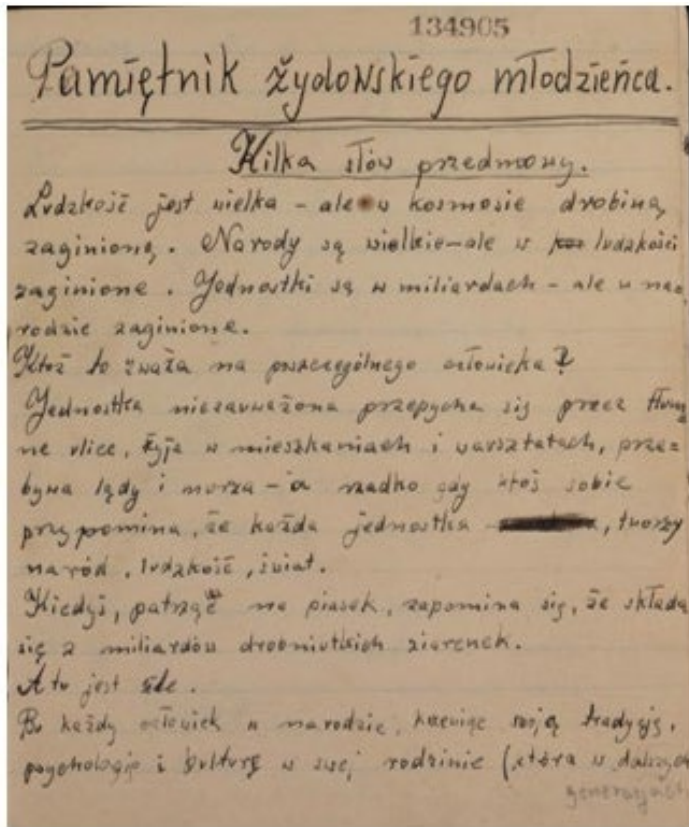 134905
Pamiętnik żydowskiego młodzieńca.
Kilka słów przedmowy.
Ludzkość jest wielka - ale w kosmosie drobiną
zaginioną. Narody są wielkie - ale w ludzkości
zaginione. Jednostki są w miliardach - ale w na=
rodzie zaginione.
Któż to zważa na poszczególnego człowieka?
Jednostka niezauważona przepycha się przez tłum
ne ulice, żyje w mieszkaniach i warsztatach, prze=
bywa lądy i morza - a rzadko gdy ktoś sobie
przypomina, że każda jednostka , tworzy
naród, ludzkość, świat.
Kiedyś, patrząc na piasek, zapomina się, że składa
się z miliardów drobniutkich ziarenek.
A to jest źle.
Bo każdy człowiek w narodzie, krzewiąc swoją tradycję,
psychologię i kulturę w swej rodzinie (która w dalszych
generacjach